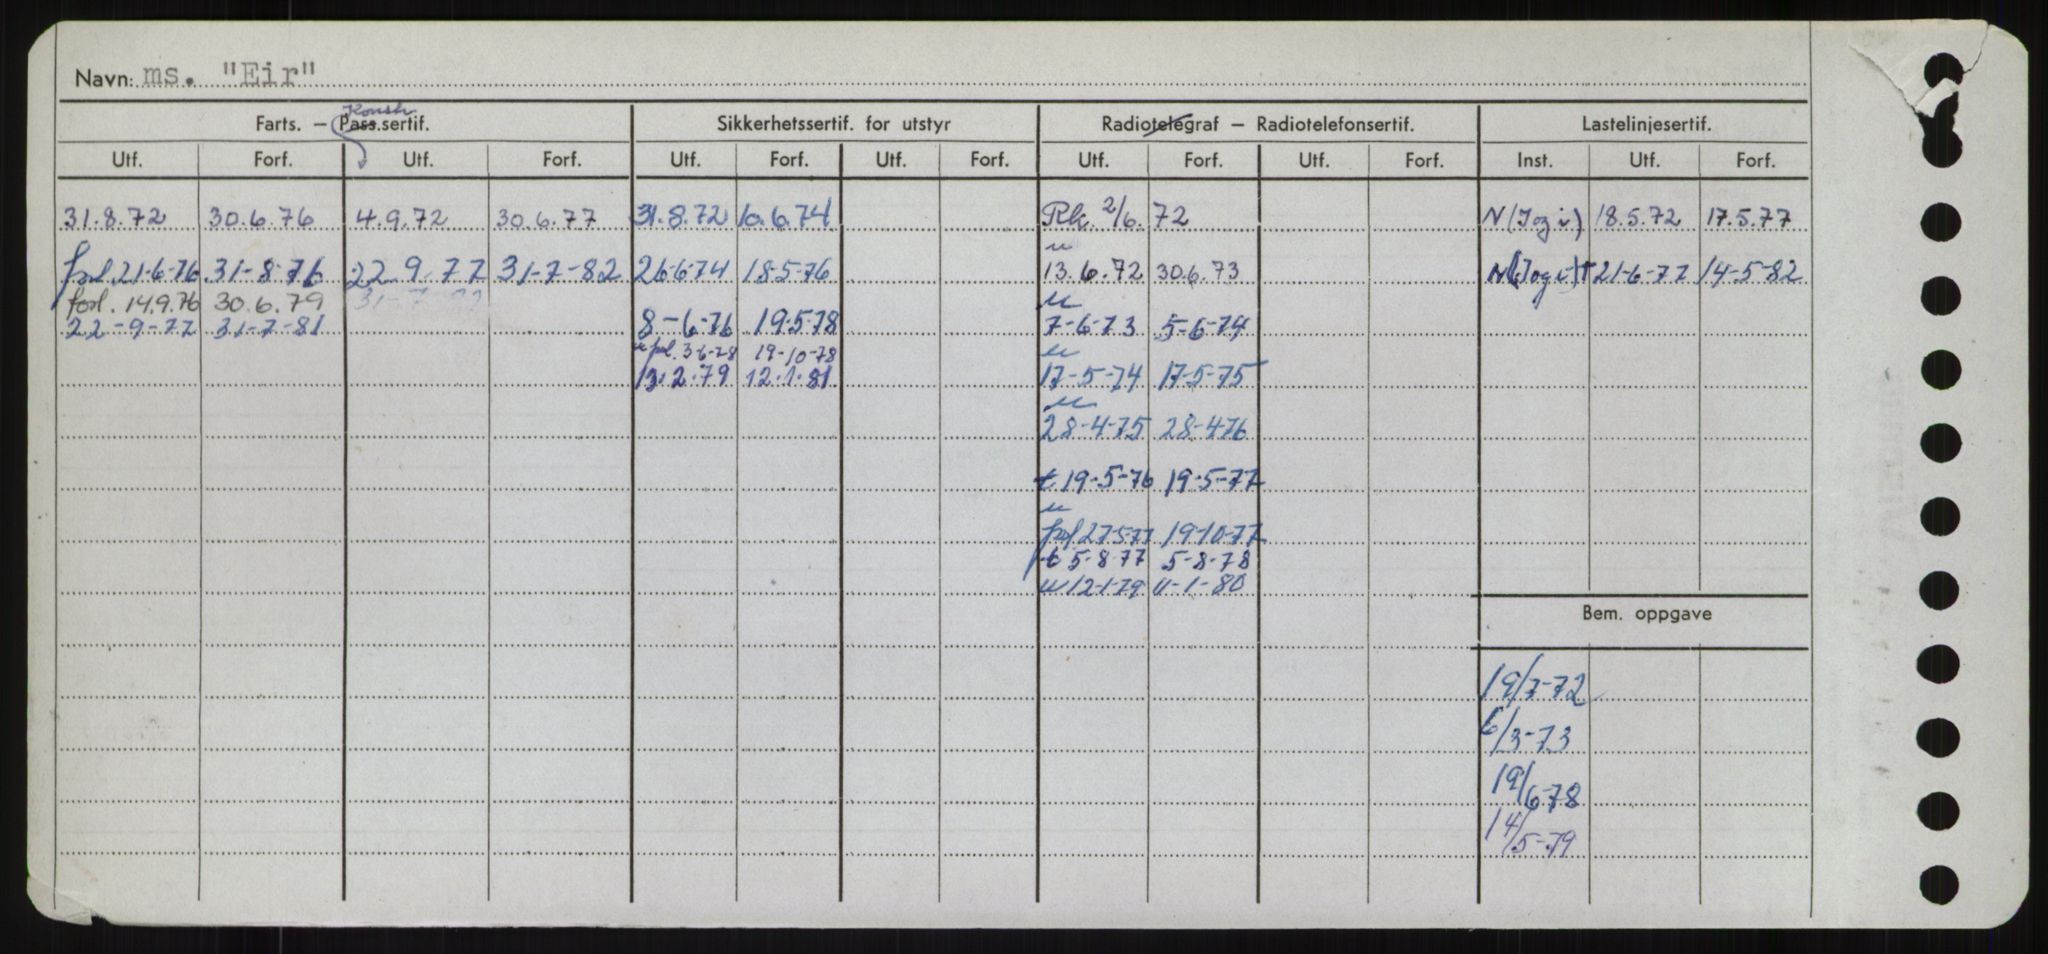 Navn: ms. "Eir"
Konstr
Farts. — Pass.sertif. Sikkerhetssertif. for utstyr Radiotelegraf — Radiotelefonsertif. Lastelinjesertif.
Utf. Forf. Utf. Forf. Utf. Forf. Utf. Forf. Utf. Forf. Utf. Forf. Inst. Utf. Forf.
31.8.72 30.6.76 4.9.72 30.6.77 31.8.72 10.6.74 Rk. 2/6. 72 N(Jog i) 18.5.72 17.5.77
u
forl. 21-6-76 31-8-76 22.9.77 31-7-82 26-6-74 18-5-76 13.6.72 30.6.73 N(Jog i)T 21-6-77 14-5-82
forl. 14.9.76 30.6.79 u
22-9-77 31-7-81 8-6-76 19-5-78 7-6-73 5-6-74
u forl. 3-6-78 19-10-78 u
13.2.79 12.1.81 17-5-74 17-5-75
u
28-4-75 28-4-76
t 19-5-76 19-5-77
u
forl 27-5-77 19-10-77
t 5-8-77 5-8-78
u 12-1-79 11-1-80
Bem. oppgave
19/7-72
6/3-73
19/6-78
14/5-79